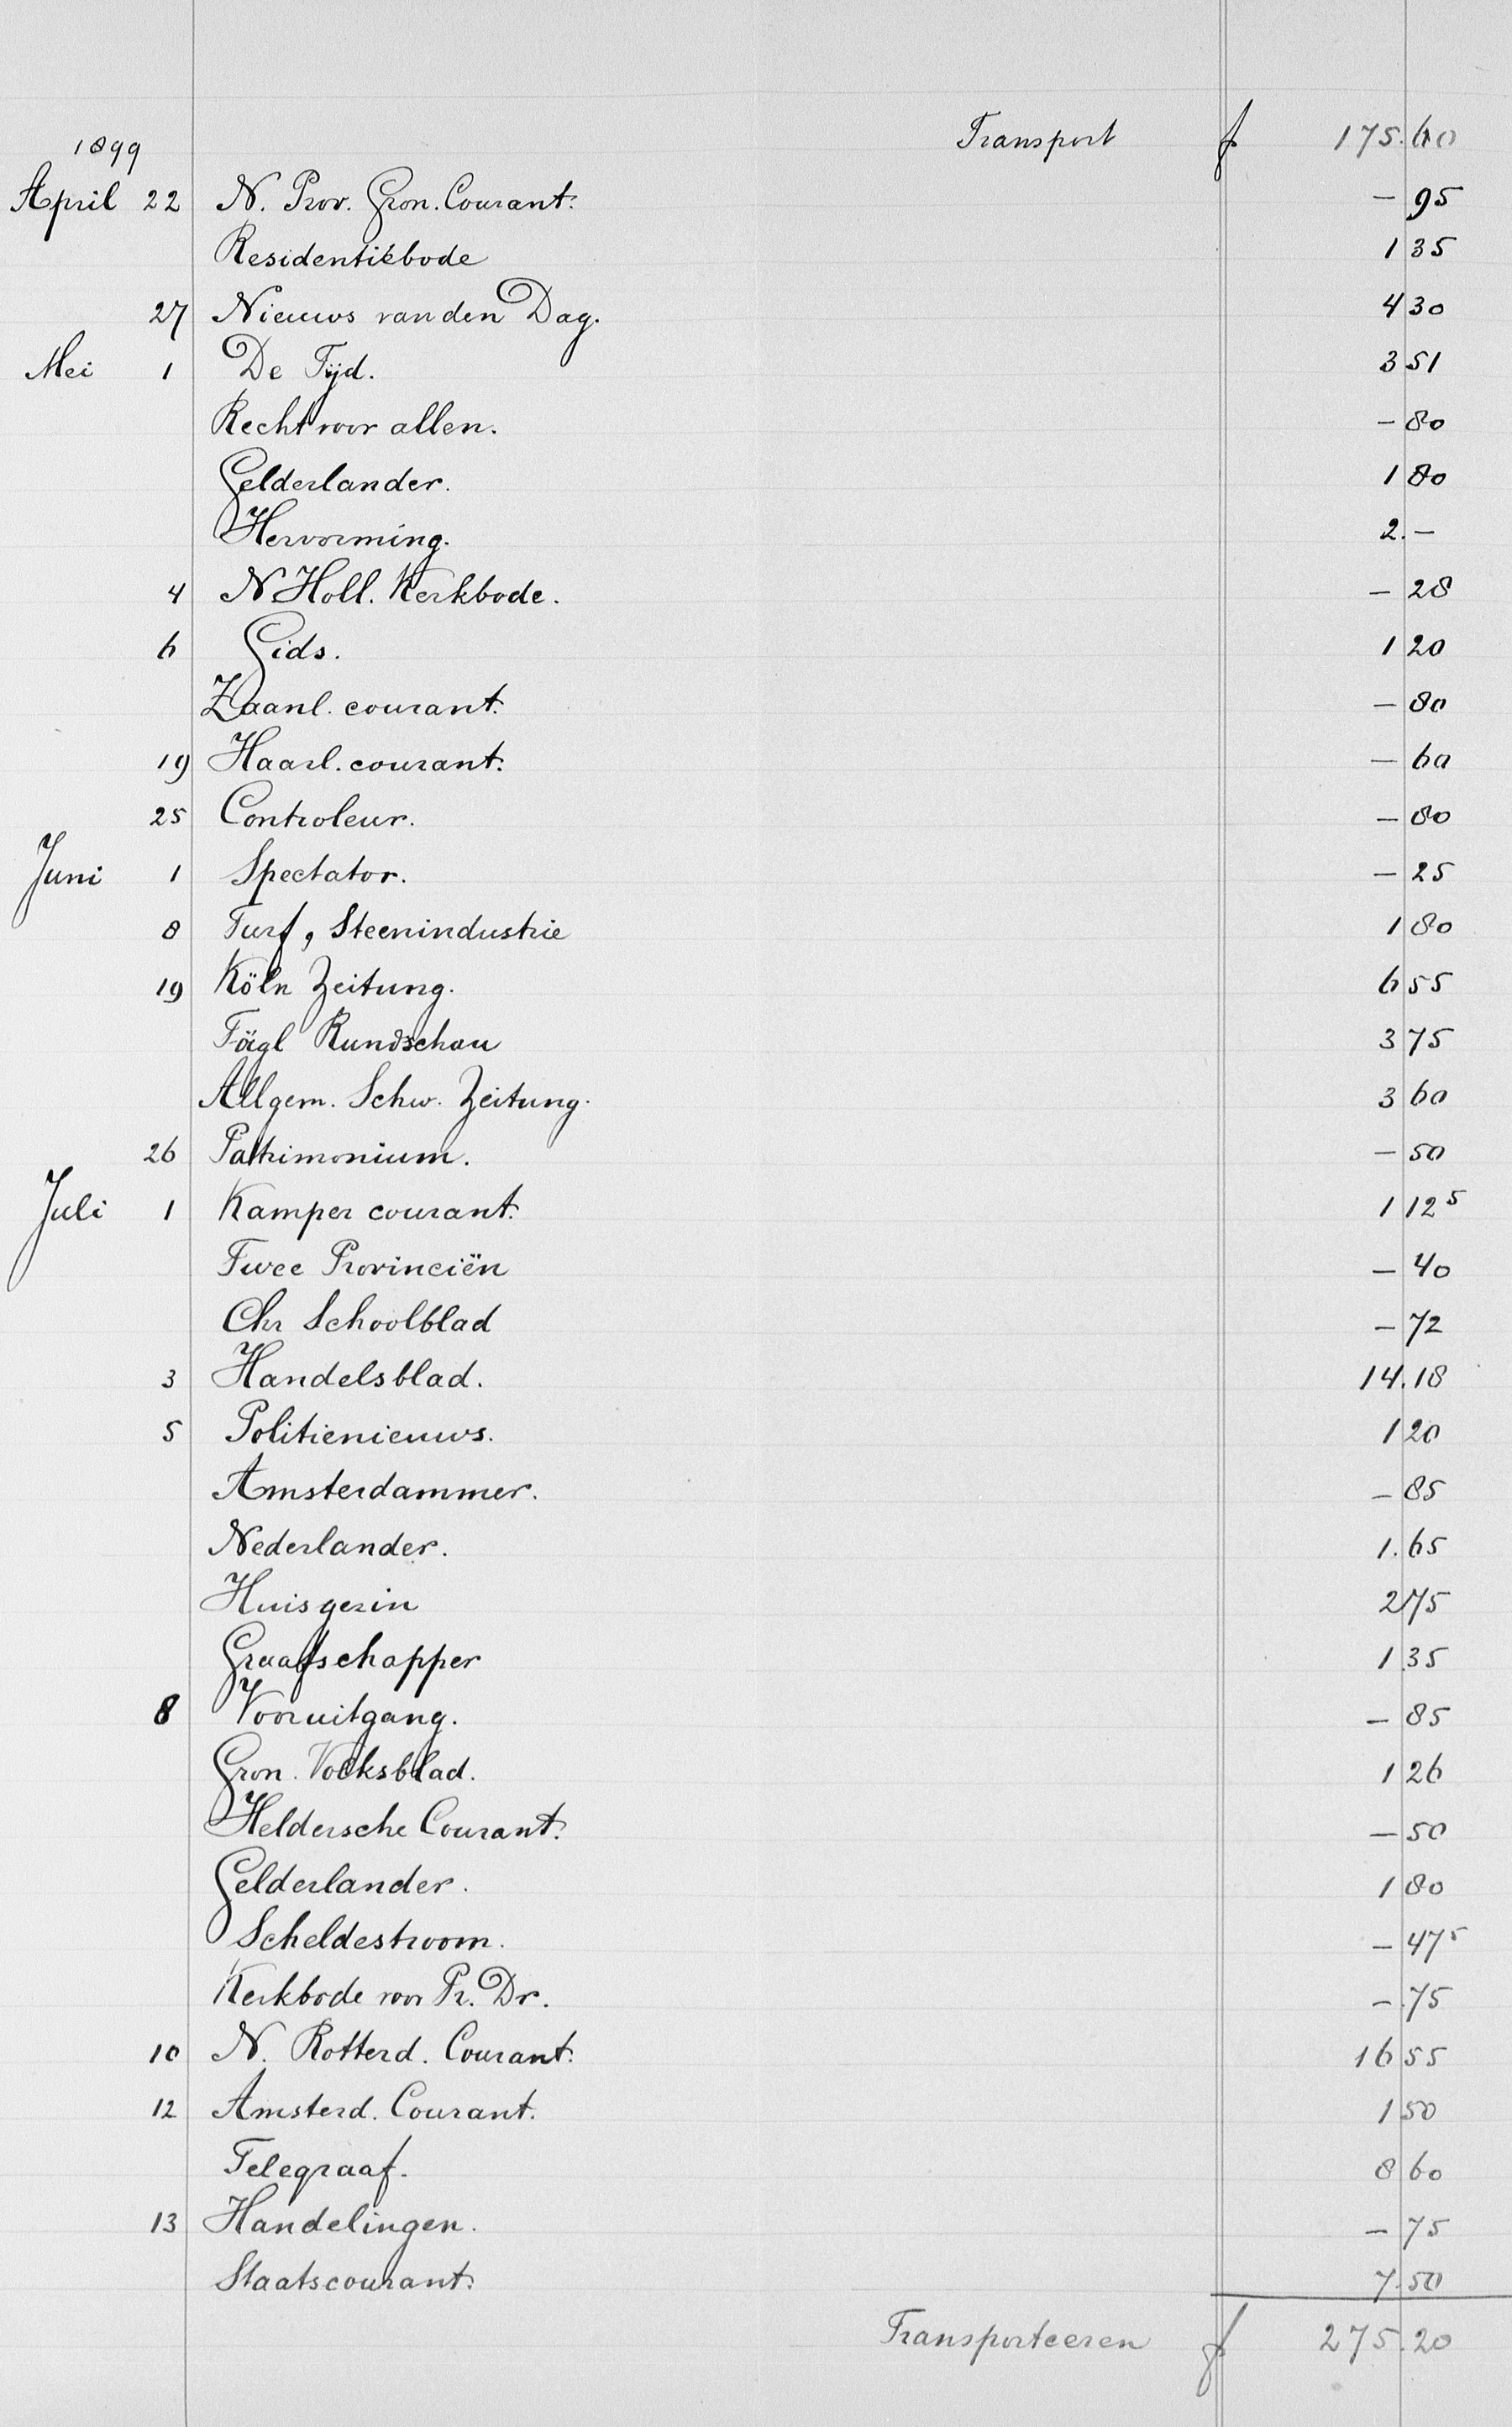 Transport f 175.60
1899
April 22 N. Prov. Gron. Courant. – 95
Residentiebode 1 35
27 Nieuws van den Dag. 4 30
Mei 1 De Tijd. 3 51
Recht voor allen. – 80
Gelderlander. 1 80
Hervorming. 2. –
4 N Holl. Kerkbode. – 28
6 Gids. 1 20
Zaanl. courant. – 80
19 Haarl. courant. – 60
25 Controleur. – 80
Juni 1 Spectator. – 25
8 Turf, Steenindustrie 1 80
19 Köln Zeitung. 6 55
Tägl Rundschau 3 75
Allgem. Schw. Zeitung. 3 60
26 Patrimonium. – 50
Juli 1 Kamper courant. 1 12⁵
Twee Provinciën – 40
Chr Schoolblad – 72
3 Handelsblad. 14.18
5 Politienieuws. 1 20
Amsterdammer. – 85
Nederlander. 1.65
Huisgezin 2 75
Graafschapper 1 35
8 Vooruitgang. – 85
Gron. Volksblad. 1 26
Heldersche Courant. – 50
Gelderlander. 1 80
Scheldestroom. – 47⁵
Kerkbode voor Pr. Dr. – 75
10 N. Rotterd. Courant. 16 55
12 Amsterd. Courant. 1 50
Telegraaf. 8 60
13 Handelingen. – 75
Staatscourant. 7.50
Transporteeren f 275.20